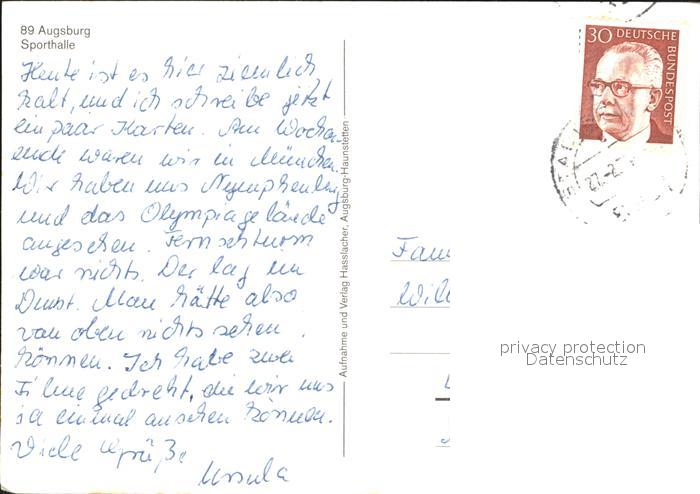 89 Augsburg
Sporthalle
Heute ist es hier ziemlich
kalt, und ich schreibe jetzt
ein paar Karten. Am Wochen-
ende waren wir in München.
Wir haben uns Nymphenburg
und das Olympiagelände
angesehen. Fernsehturm
war nichts. Der lag im
Dunst. Man hätte also
von oben nichts sehen
können. Ich habe zwei
Filme gedreht, die wir uns
ja einmal ansehen können.
Viele Grüße
Ursula
Aufnahme und Verlag Hasslacher, Augsburg-Haunstetten
30 DEUTSCHE
BUNDESPOST
Fam
Wil
privacy protection
Datenschutz